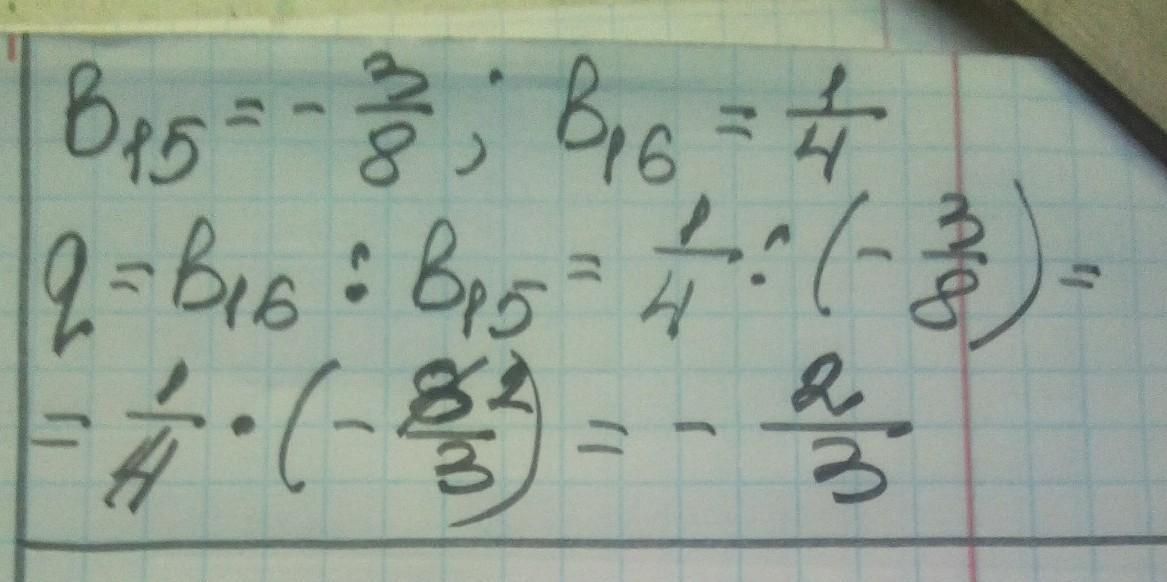 B₁₅ = - 3/8 ; B₁₆ = 1/4
q = B₁₆ : B₁₅ = 1/4 : (- 3/8) =
= 1/4 · (- 8 2/3) = - 2/3